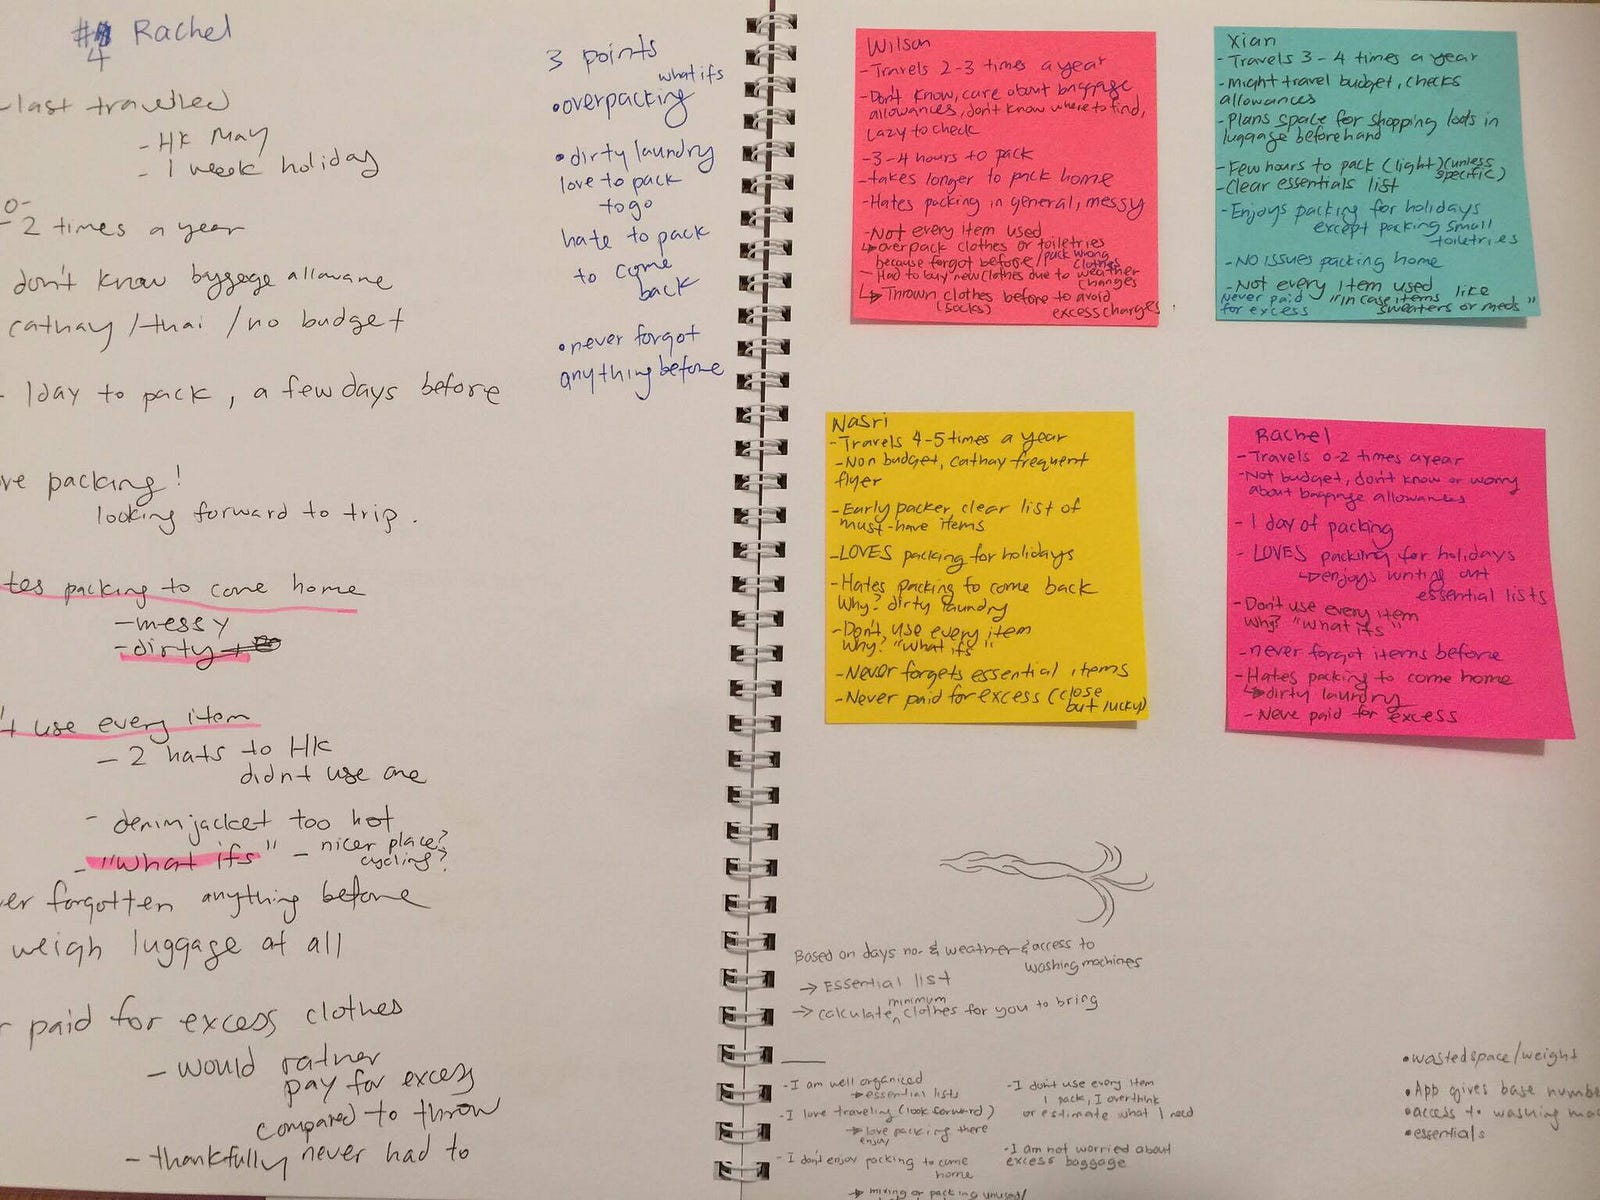 #4 Rachel
- last travelled
- HK May
- 1 week holiday
0-
- 2 times a year
don't know baggage allowane
cathay / thai / no budget
- 1 day to pack, a few days before
ve packing!
looking forward to trip.
tes packing to come home
- messy
- dirty
't use every item
- 2 hats to HK
didn't use one
- denim jacket too hot
- "what ifs" - nicer place?
cycling?
er forgotten anything before
weigh luggage at all
r paid for excess clothes
- would rather
pay for excess
compared to throw
- thankfully never had to
3 points
what ifs
• overpacking
• dirty laundry
love to pack
to go
hate to pack
to come
back
• never forgot
anything before
Wilson
- Travels 2-3 times a year
- Don't know, care about baggage
allowances, don't know where to find,
lazy to check
- 3-4 hours to pack
- takes longer to pack home
- Hates packing in general, messy
- Not every item used
↳ overpack clothes or toiletries
because forgot before / pack wrong
clothes
- Had to buy new clothes due to weather
changes
↳ Thrown clothes before to avoid
(socks) excess charges
Xian
- Travels 3-4 times a year
- might travel budget, checks
allowances
- Plans space for shopping loots in
luggage beforehand
- Few hours to pack (light) (unless
specific)
- Clear essentials list
- Enjoys packing for holidays
except packing small
toiletries
- NO issues packing home
- Not every item used
"in case items like
sweaters or meds"
never paid
for excess
Nasri
- Travels 4-5 times a year
- Non budget, cathay frequent
flyer
- Early packer, clear list of
must-have items
- LOVES packing for holidays
- Hates packing to come back
Why? dirty laundry
- Don't use every item
Why? "what ifs"
- Never forgets essential items
- Never paid for excess (close
but lucky)
Rachel
- Travels 0-2 times a year
- Not budget, don't know or worry
about baggage allowances
- 1 day of packing
- LOVES packing for holidays
↳ enjoys writing out
essential lists
- Don't use every item
Why? "what ifs"
- never forgot items before
- Hates packing to come home
↳ dirty laundry
- Neve paid for excess
Based on days no. & weather & access to
washing machines
→ Essential list
→ calculate minimum clothes for you to bring
- I am well organized
→ essential lists
- I love traveling (look forward)
→ love packing there
enjoy
- I don't enjoy packing to come
home
→ mixing or packing unused/
- I don't use every item
I pack, I overthink
or estimate what I need
- I am not worried about
excess baggage
• wasted space/weight
• App gives base numbe
• access to washing ma
• essentials